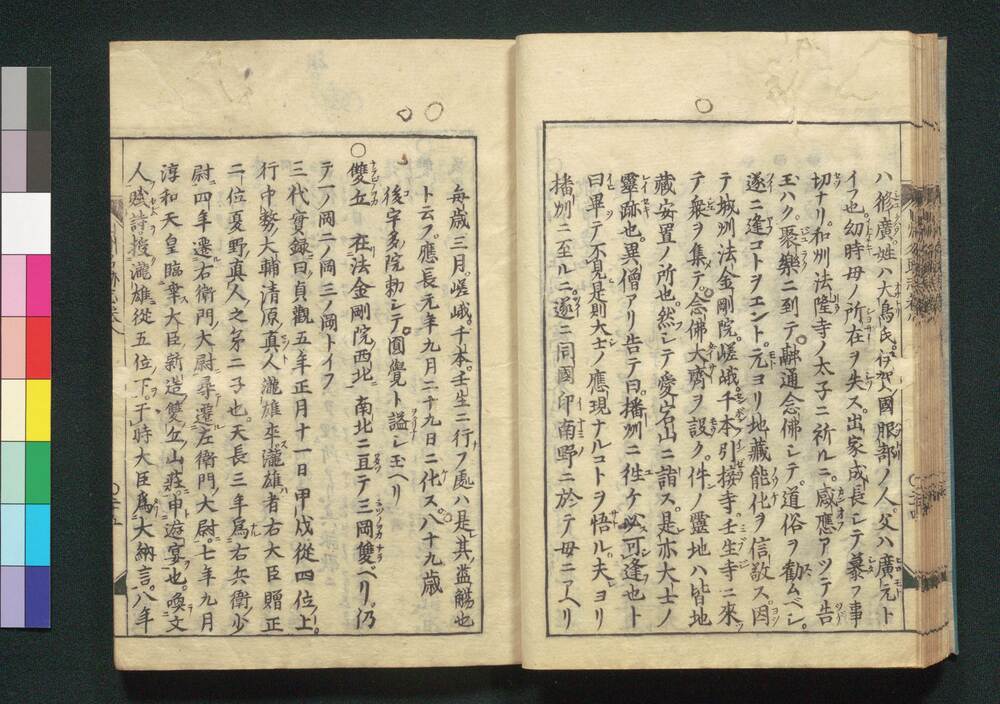 ハ修廣姓ハ大鳥氏。伊賀ノ國服部ノ人。父ハ廣元ト
イフ也幼時母ノ所在ヲ失ス。出家成長シテ慕フ事
切ナリ。和州法隆寺ノ太子ニ祈ルニ。感應アツテ告
玉ハク。聚樂ニ到テ融通念佛シテ。道俗ヲ勸ムベシ。
遂ニ逢コトヲエント。元ヨリ地藏能化ヲ信敬ス。因
テ城州法金剛院。嵯峨。千本引接寺。壬生寺ニ來
テ衆ヲ集テ。念佛大齊ヲ設ク。件ノ靈地ハ皆地
藏安置ノ所也。然シテ愛宕山ニ詣ス。是亦大士ノ
靈跡也。異僧アリ告テ曰。播州ニ徃ケ必可逢也ト
曰畢テ不見是則大士ノ應現ナルコトヲ悟ル。夫ヨリ
播州ニ至ルニ。遂ニ同國印南野ニ於テ母ニアヘリ
每歳三月。嵯峨。千本。壬生ニ行フ處ハ是其濫觴也
ト云フ。應長元年九月二十九日ニ化ス。八十九歳
後宇多ノ院勅シテ。圓覺ト謚シ玉ヘリ
○雙丘 在法金剛院西北 南北ニ亘テ三岡雙ベリ。仍
テ一ノ岡二ノ岡三ノ岡トイフ
三代實録曰貞觀五年正月十一日甲戌從四位上
行中務大輔清原眞人瀧雄卒。瀧雄者右大臣贈正
二位夏野眞人之第二子也。天長三年爲右兵衞少
尉四年遷右衞門大尉尋遷左衞門大尉。七年九月
淳和天皇臨幸大臣新造雙丘山莊申遊宴也。喚文
人賦詩。授瀧雄從五位下。于時大臣爲大納言。八年